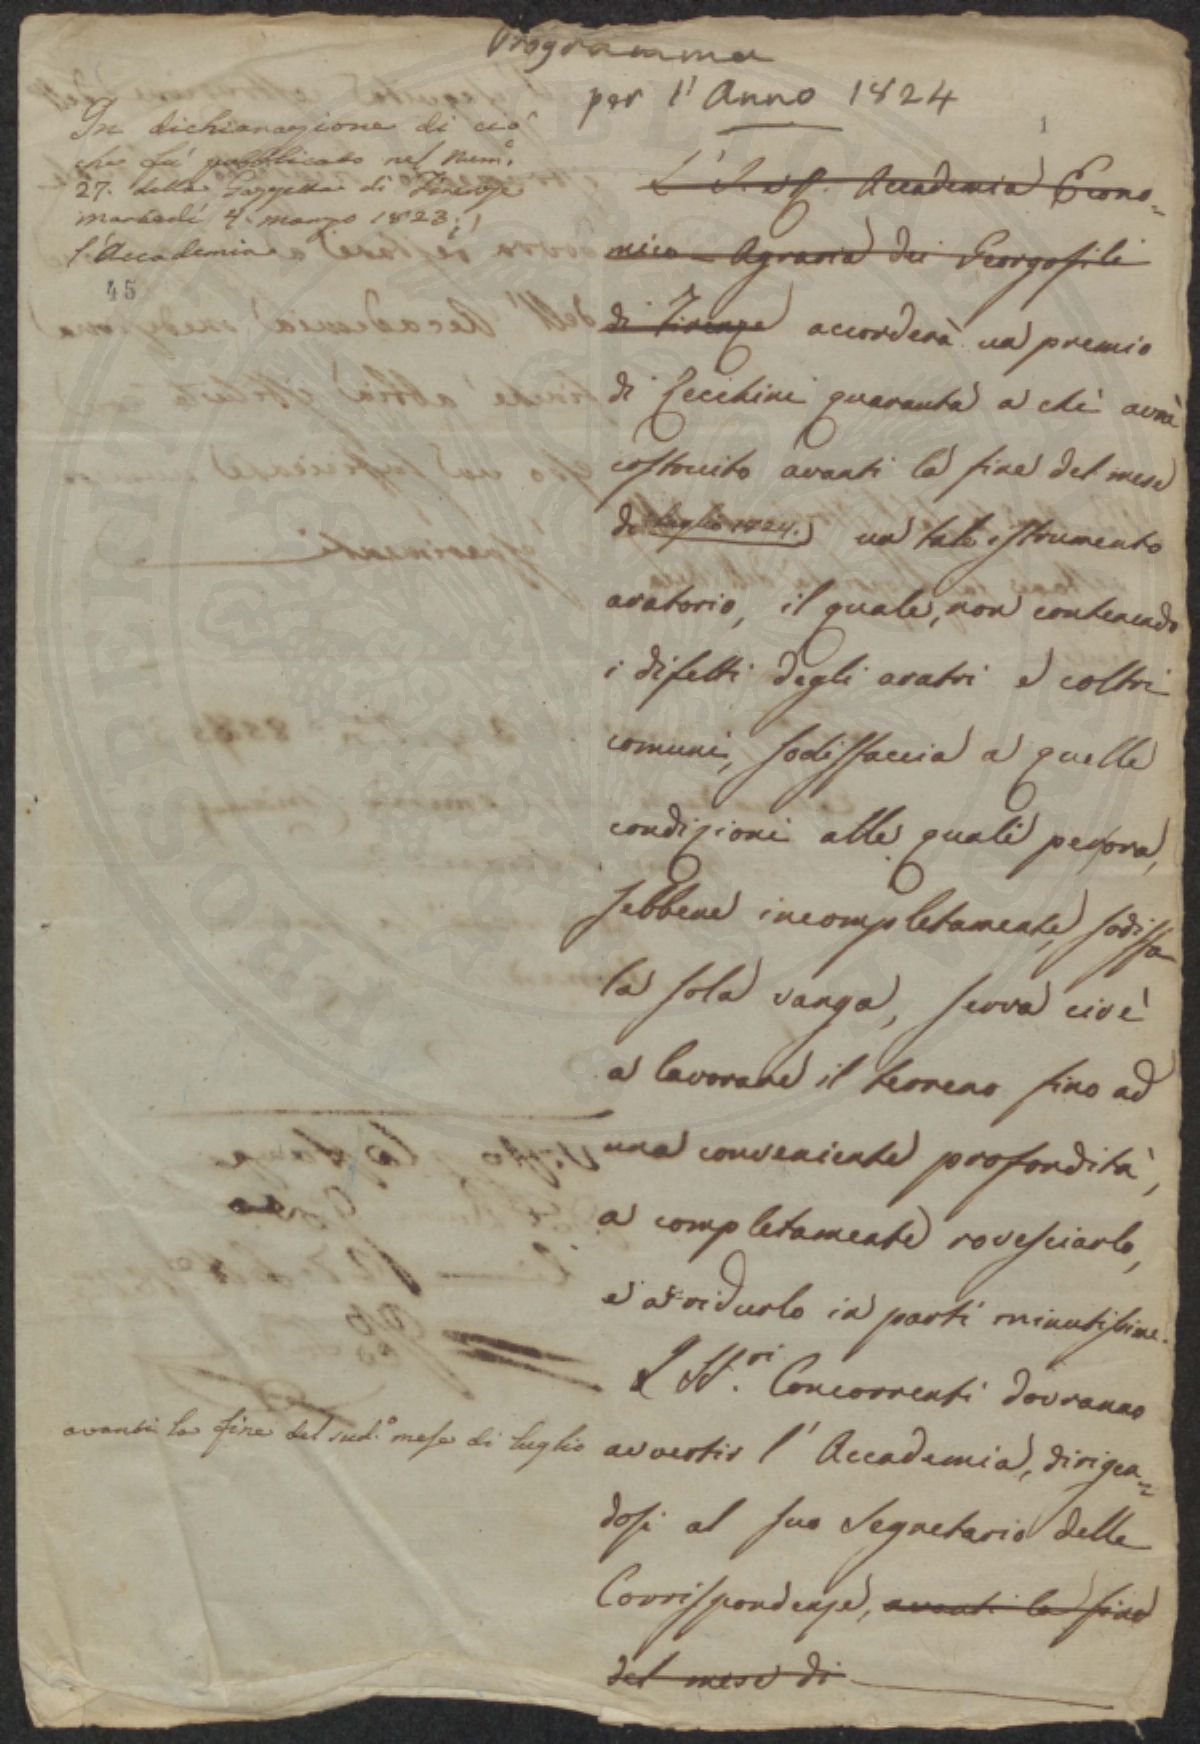 Programma
per l'Anno 1824
1
In dichiarazione di ciò
che fu pubblicato nel Num.o
27. della Gazzetta di Firenze
martedì 4. marzo 1823;
l'Accademia
45
L'I. e R. Accademia Econo=
mico-Agraria dei Georgofili
di Firenze accorderà un premio
di Zecchini quaranta a chi avrà
costruito avanti la fine del mese
di luglio 1824. un tale istrumento
aratorio, il quale, non contenendo
i difetti degli aratri e coltri
comuni, sodisfaccia a quelle
condizioni alle quali per ora,
sebbene incompletamente, sodisfa
la sola vanga, serva cioè
a lavorare il terreno fino ad
una conveniente profondità,
a completamente rovesciarlo,
e a ridurlo in parti minutissime.
I SS.ri Concorrenti dovranno
avanti la fine del sud.o mese di luglio
avvertir l'Accademia, dirigen=
dosi al suo Segretario delle
Corrispondenze, avanti la fine
del mese di
PROSPERITATI PUBLICAE